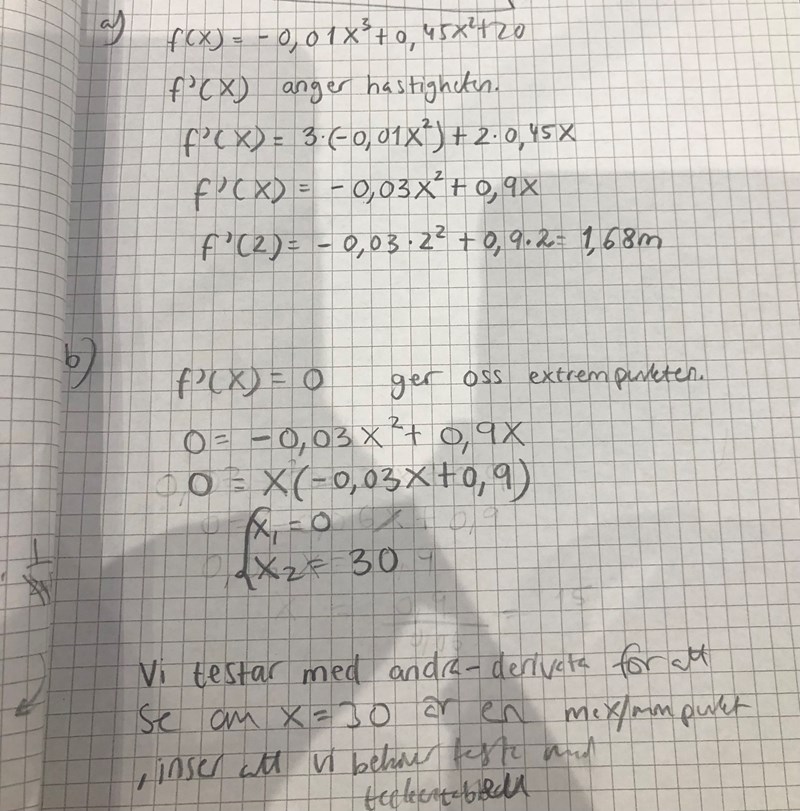 a) f(x) = -0,01x³+0,45x²+20
f'(x) anger hastigheten.
f'(x) = 3·(-0,01x²)+2·0,45x
f'(x) = -0,03x²+0,9x
f'(2) = -0,03·2²+0,9·2= 1,68m
b) f'(x) = 0 ger oss extrempunkten.
0= -0,03x²+0,9x
0 = x(-0,03x+0,9)
{x₁=0
x₂= 30
Vi testar med andra-derivata för att
se om x=30 är en max/min punkt
, inser att vi behöver testa med
teckentabell